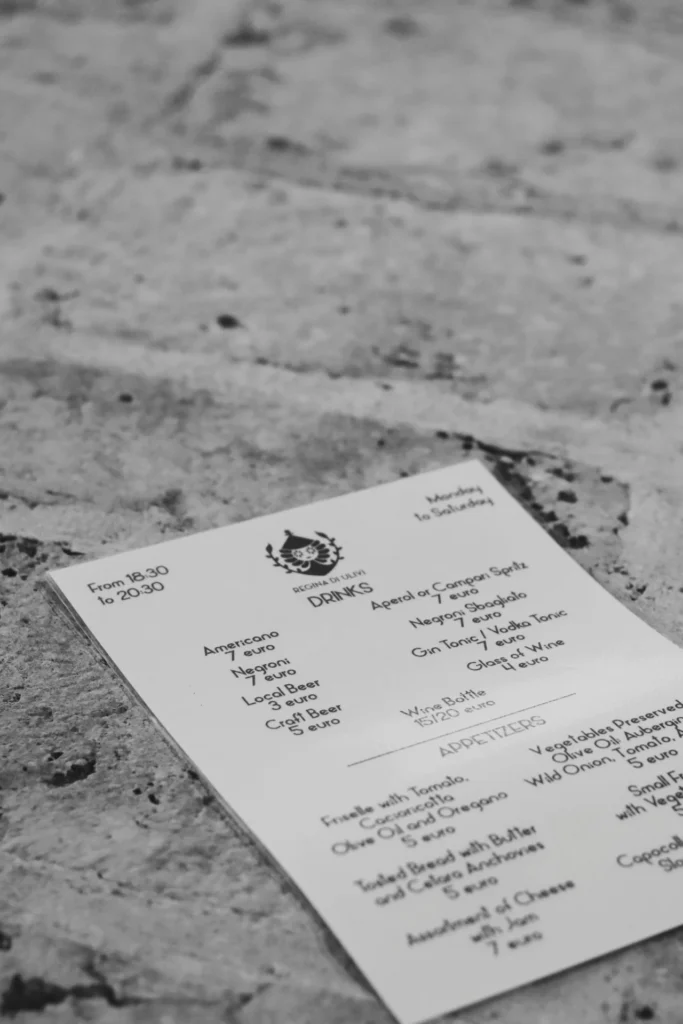 From 18:30
to 20:30
Monday
to Saturday
REGINA DI ULIVI
DRINKS
Americano
7 euro
Negroni
7 euro
Local Beer
3 euro
Craft Beer
5 euro
Aperol or Campari Spritz
7 euro
Negroni Sbagliato
7 euro
Gin Tonic / Vodka Tonic
7 euro
Glass of Wine
4 euro
Wine Bottle
15/20 euro
APPETIZERS
Friselle with Tomato,
Cacioricotta
Olive Oil and Oregano
5 euro
Tosted Bread with Butter
and Cetara Anchovies
5 euro
Assortment of Cheese
with Jam
7 euro
Vegetables Preserved
Olive Oil: Aubergin
Wild Onion, Tomato, A
5 euro
Small Fr
with Veget
5
Capocoll